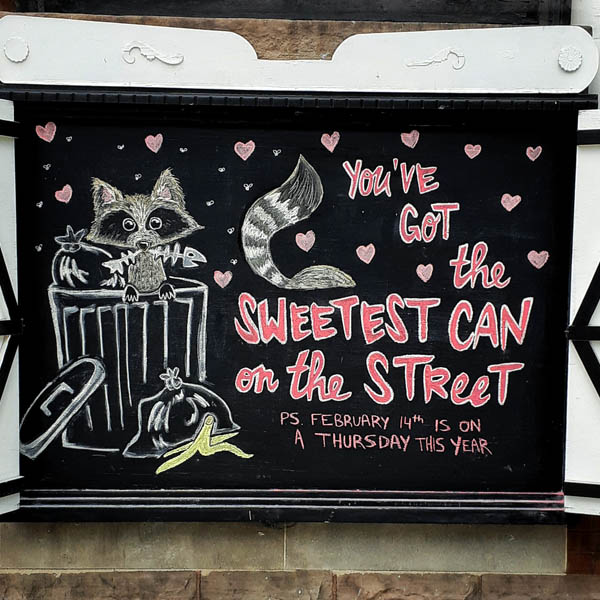 YOU'VE
GOT
the
SWEETEST CAN
on the STREET
PS. FEBRUARY 14th IS ON
A THURSDAY THIS YEAR